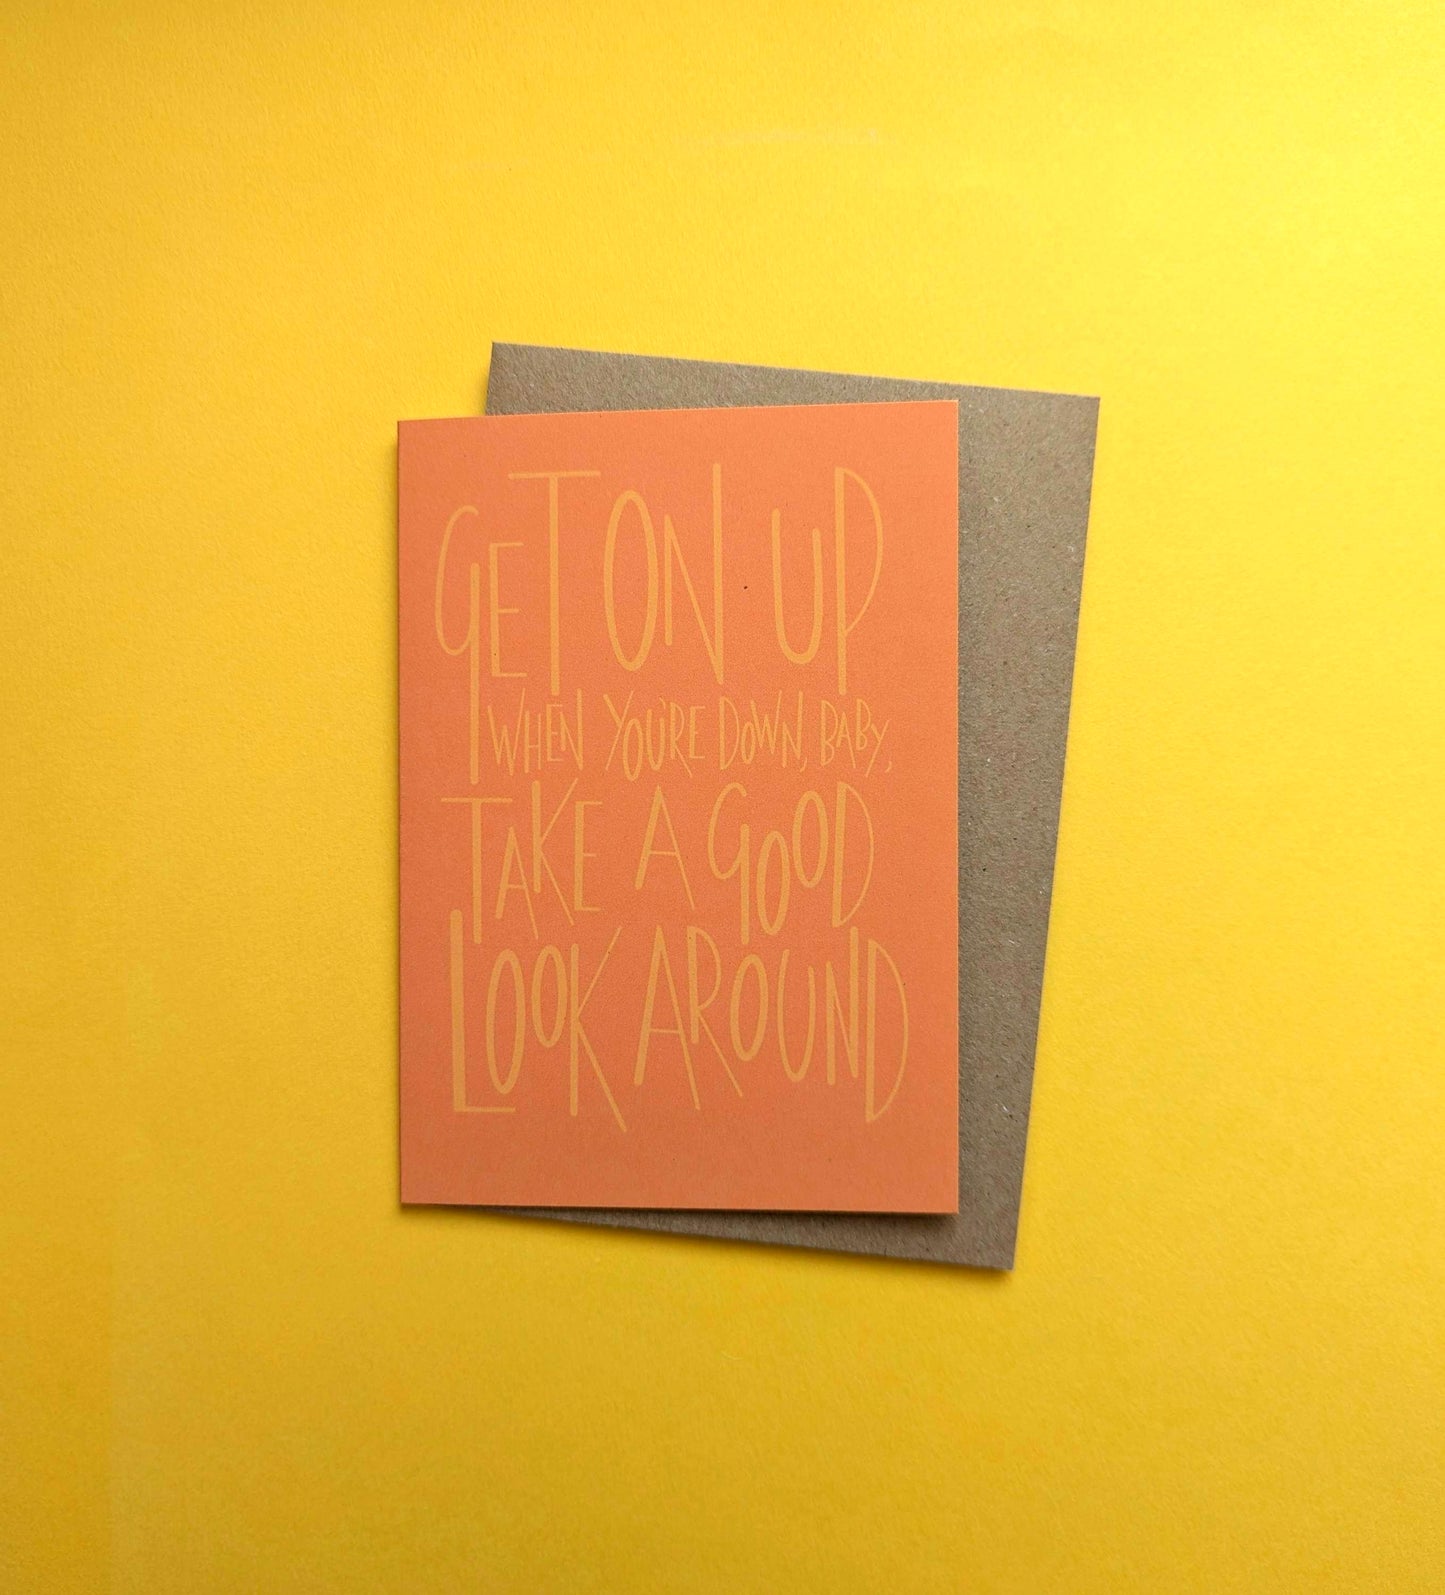 GET ON UP
WHEN YOU'RE DOWN, BABY,
TAKE A GOOD
LOOK AROUND